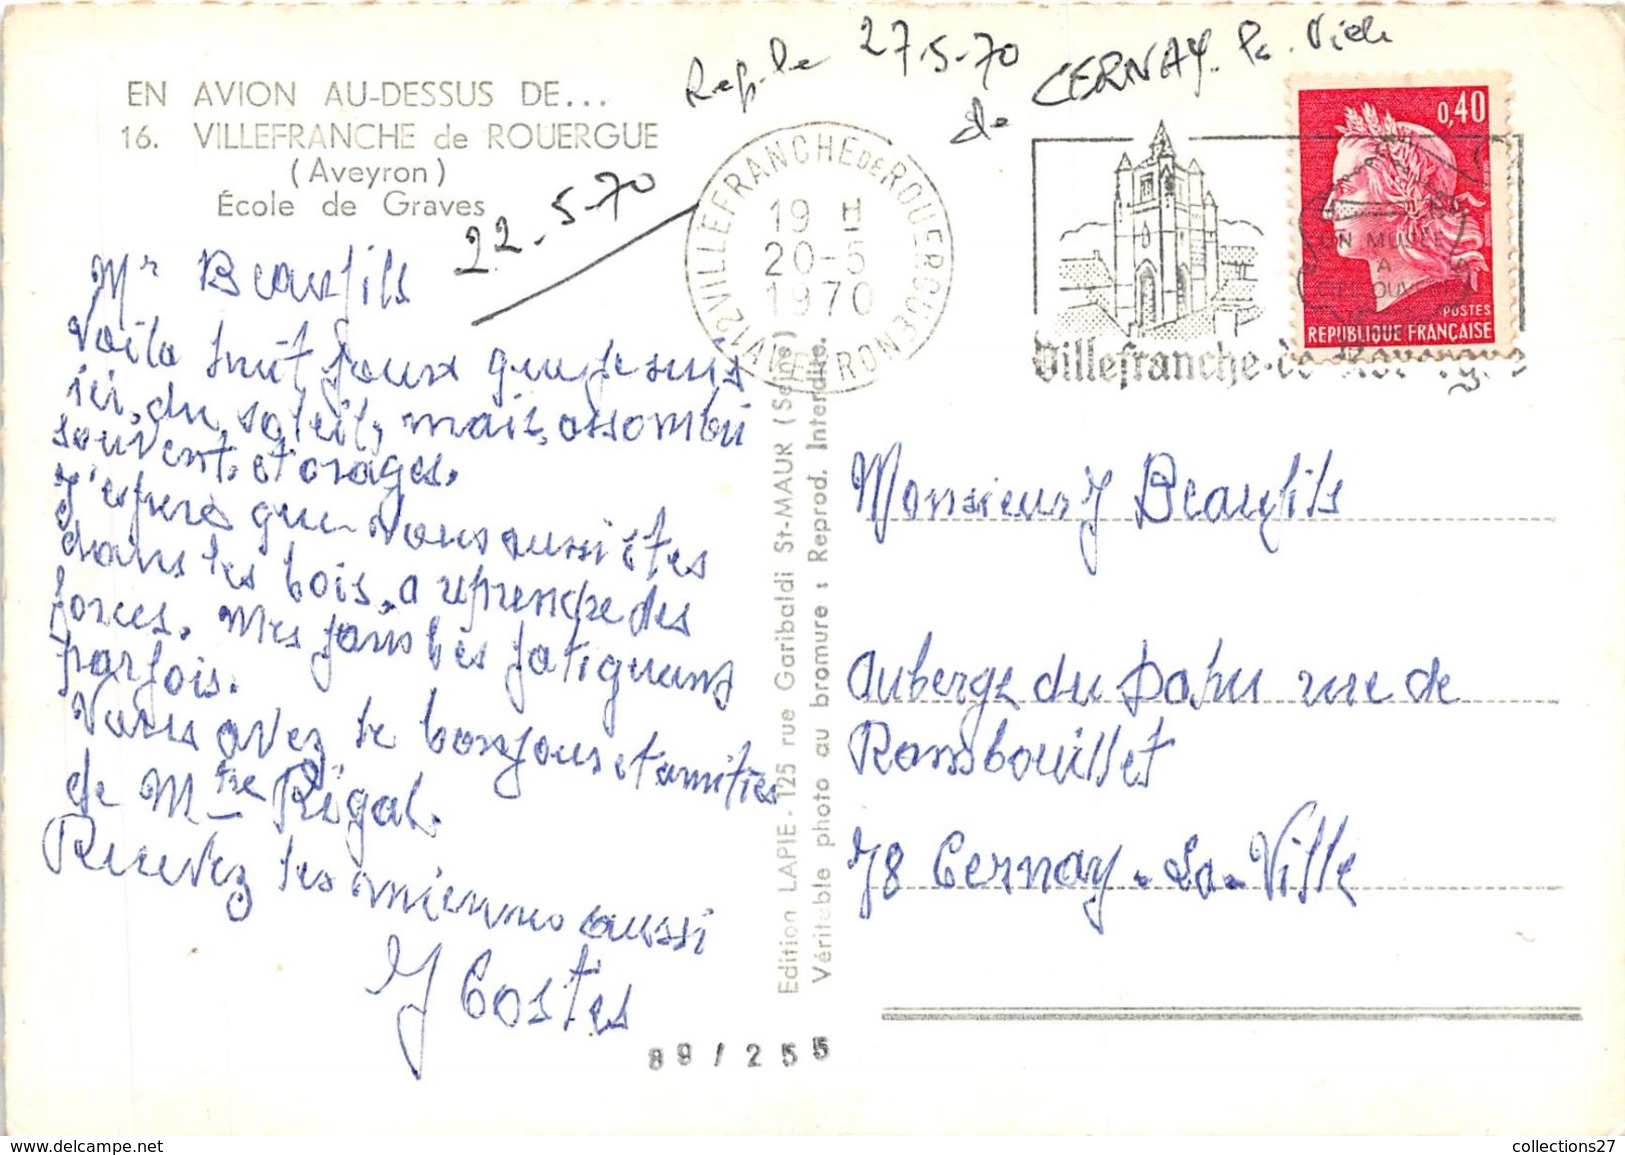 Rep. le 27-5-70
de CERNAY. la. Ville
EN AVION AU-DESSUS DE...
16. VILLEFRANCHE de ROUERGUE
(Aveyron)
École de Graves
22-5-70
12 VILLEFRANCHE DE ROUERGUE AVEYRON
19 H
20-5
1970
UN MUSÉE
A
CIEL OUVERT
Villefranche-de-Rouergue
0,40
POSTES
REPUBLIQUE FRANÇAISE
Mr Beaufils
Voila huit jours que je suis
ici, du soleil, mais, assombri
souvent, et orages.
J'espere que vous aussi êtes
dans les bois, a reprendre des
forces. Mes jambes fatiguent
parfois.
Vous avez le bonjour et amitiés
de Mme Rigal.
Recevez les miennes aussi
J Costes
Edition LAPIE - 125 rue Garibaldi St-MAUR (Seine)
Véritable photo au bromure : Reprod. Interdite.
Monsieur J Beaufils
Auberge du Dahu rue de
Rambouillet
78 Cernay-La-Ville
89/255
collections27